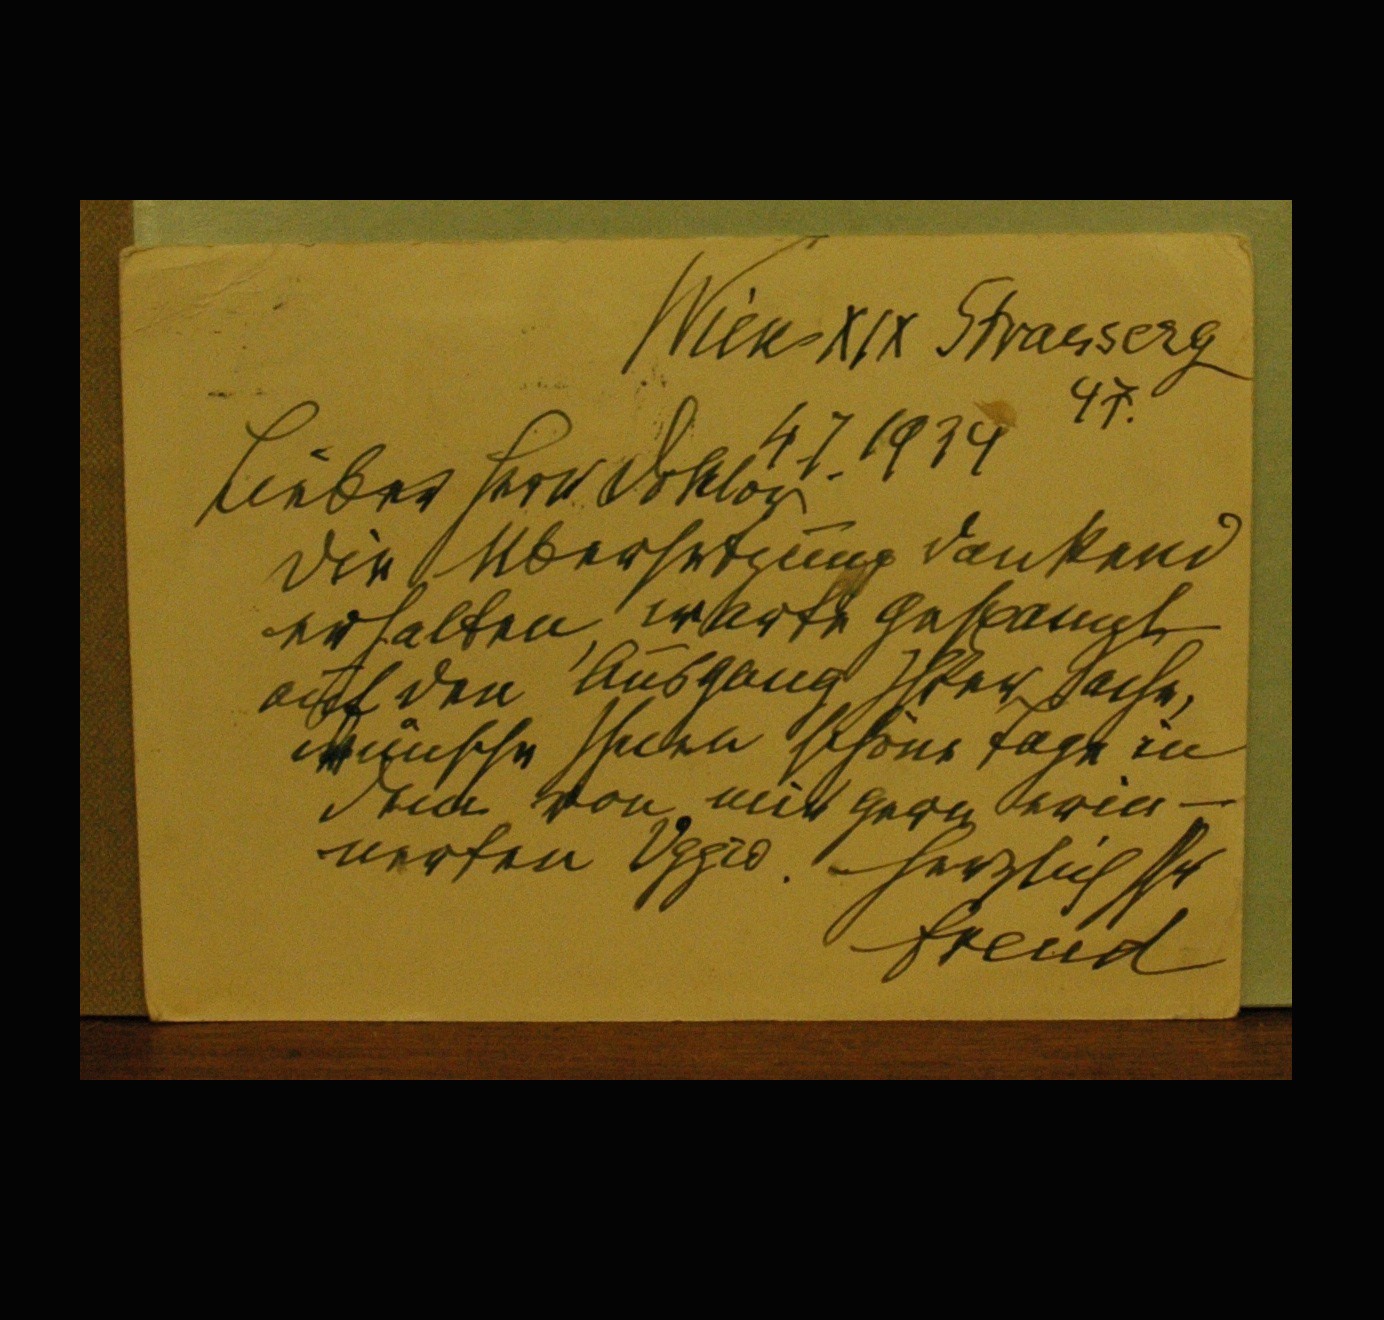 Wien XIX Strasserg
47.
4.7.1934
Lieber Herr Doktor
Die Übersetzung dankend
erhalten, warte gespannt
auf den Ausgang Ihrer Sache,
wünsche Ihnen schöne Tage in
dem von mir gern erin–
nerten Oggio. Herzlich Ihr
Freud